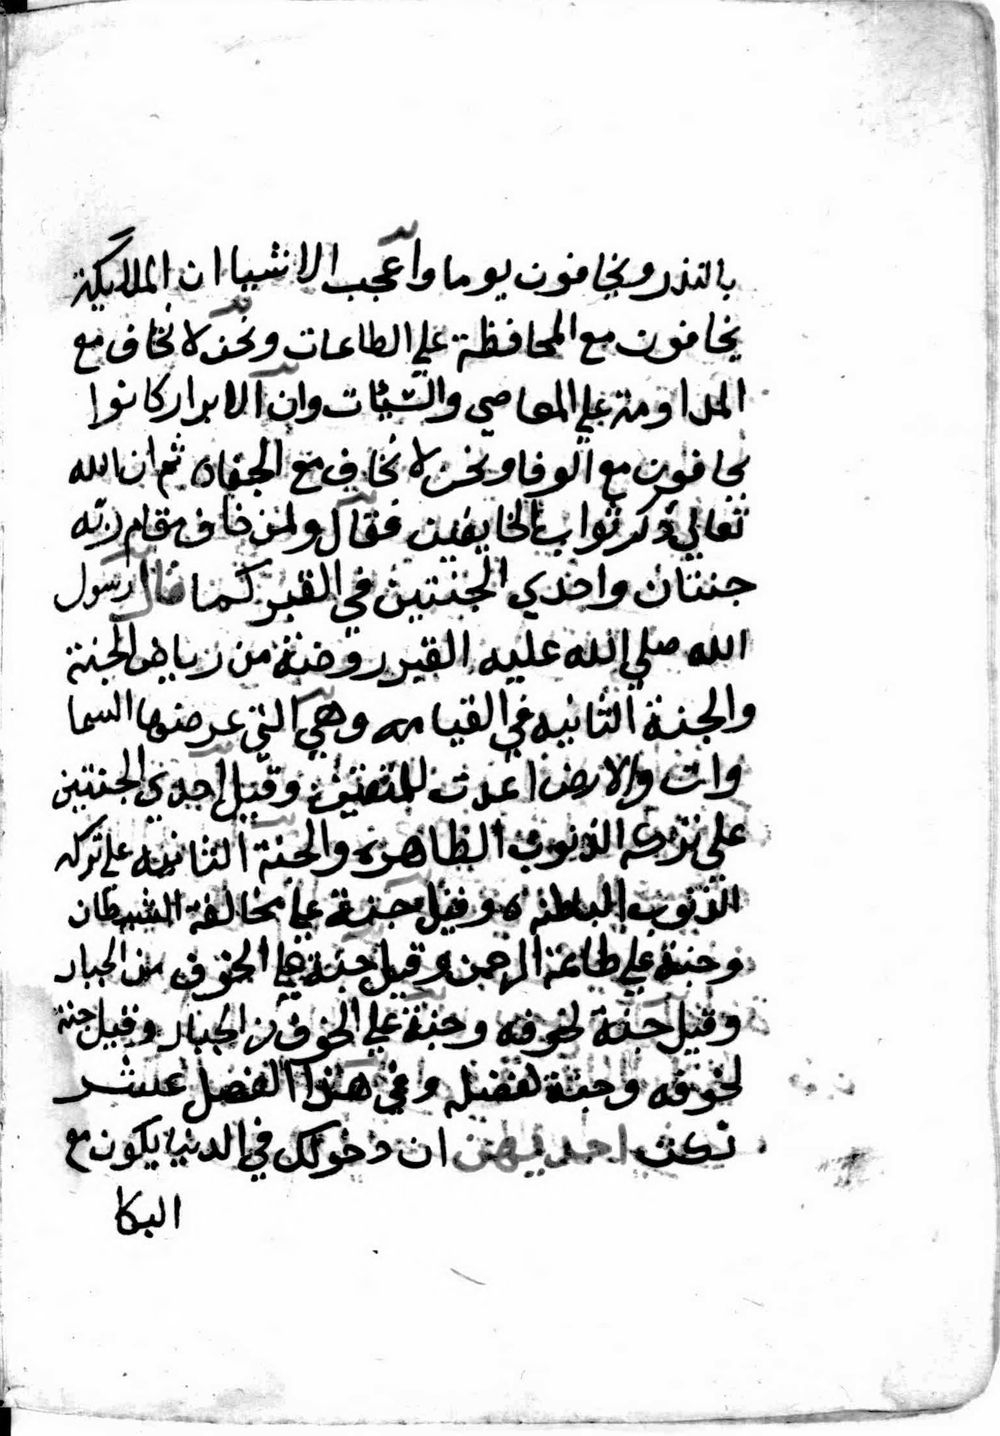 بالنذر ويخافون يوما واعجب الاشيا ان الملايكة
يخافون مع المحافظة علي الطاعات ونحن لا نخاف مع
المداومة علي المعاصي والسيئات وان الابرار كانوا
يخافون مع الوفا ونحن لا نخاف مع الجفاه ثم ان الله
تعالي ذكر ثواب الخايفين فقال ولمن خاف مقام ربه
جنتان واحدي الجنتين في القبر كما قال رسول
الله صلي الله عليه القبر روضة من رياض الجنة
والجنة الثانيه في القيامه وهي التي عرضها السما
وات والارض اعدت للمتقين وقيل احدي الجنتين
علي ترك الذنوب الظاهره والجنة الثانيه علي ترك
الذنوب الباطنه وقيل جنة علي مخالفة الشيطان
وجنة علي طاعة الرحمن وقيل جنة علي الخوف من الجبار
وقيل جنة لخوفه وجنة علي الخوف من الجبار وقيل جنة
لخوفه وجنة لفضله وفي هذا الفصل عشر
نكت احديهن ان دخولك في الدنيا يكون مع
البكا